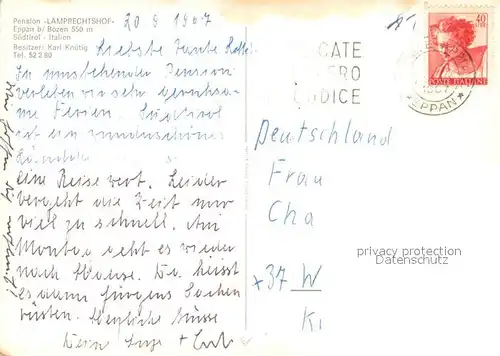 Pension »LAMPRECHTSHOF«
Eppan b/ Bozen 550 m
Südtirol - Italien
Besitzer: Karl Knütig
Tel. 52 2 80
20 9 1967
Liebste Tante
In umstehender Pension
verleben wir sehr geruhsa-
me Ferien. Südtirol
ist ein wunderschönes
Ländchen
eine Reise wert. Leider
vergeht die Zeit nur
viel zu schnell. Am
Montag geht es wieder
nach Hause. Da heisst
es dann Sachen
rüsten. Herzliche Grüsse
Deine +
CATE
ERO
ODICE
40
POSTE ITALIANE
EPPAN
Deutschland
Frau
Cha
x 37 W
Ki
privacy protection
watermark